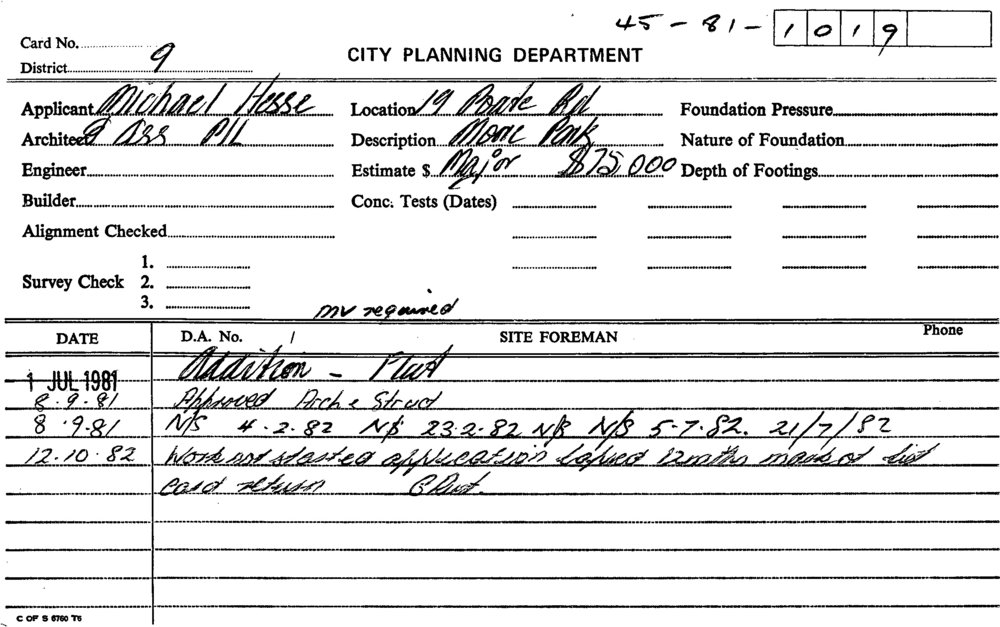 45-81-1019
Card No.
CITY PLANNING DEPARTMENT
District 9
Applicant Michael Hesse Location 19 Poate Rd Foundation Pressure
Architect & Ass P/L Description Moore Park Nature of Foundation
Engineer Estimate $ Major $75,000 Depth of Footings
Builder Conc. Tests (Dates)
Alignment Checked
1.
Survey Check 2.
3.
MV required
DATE D.A. No. / SITE FOREMAN Phone
1 JUL 1981 Addition - Flat
8.9.81 Approved Arch & Struct
8.9.81 N/S 4.2.82 N/S 23.2.82 N/S N/S 5-7-82. 21/7/82
12.10.82 Work not started application lapsed 12mths list
card return
C OF S 6760 T6